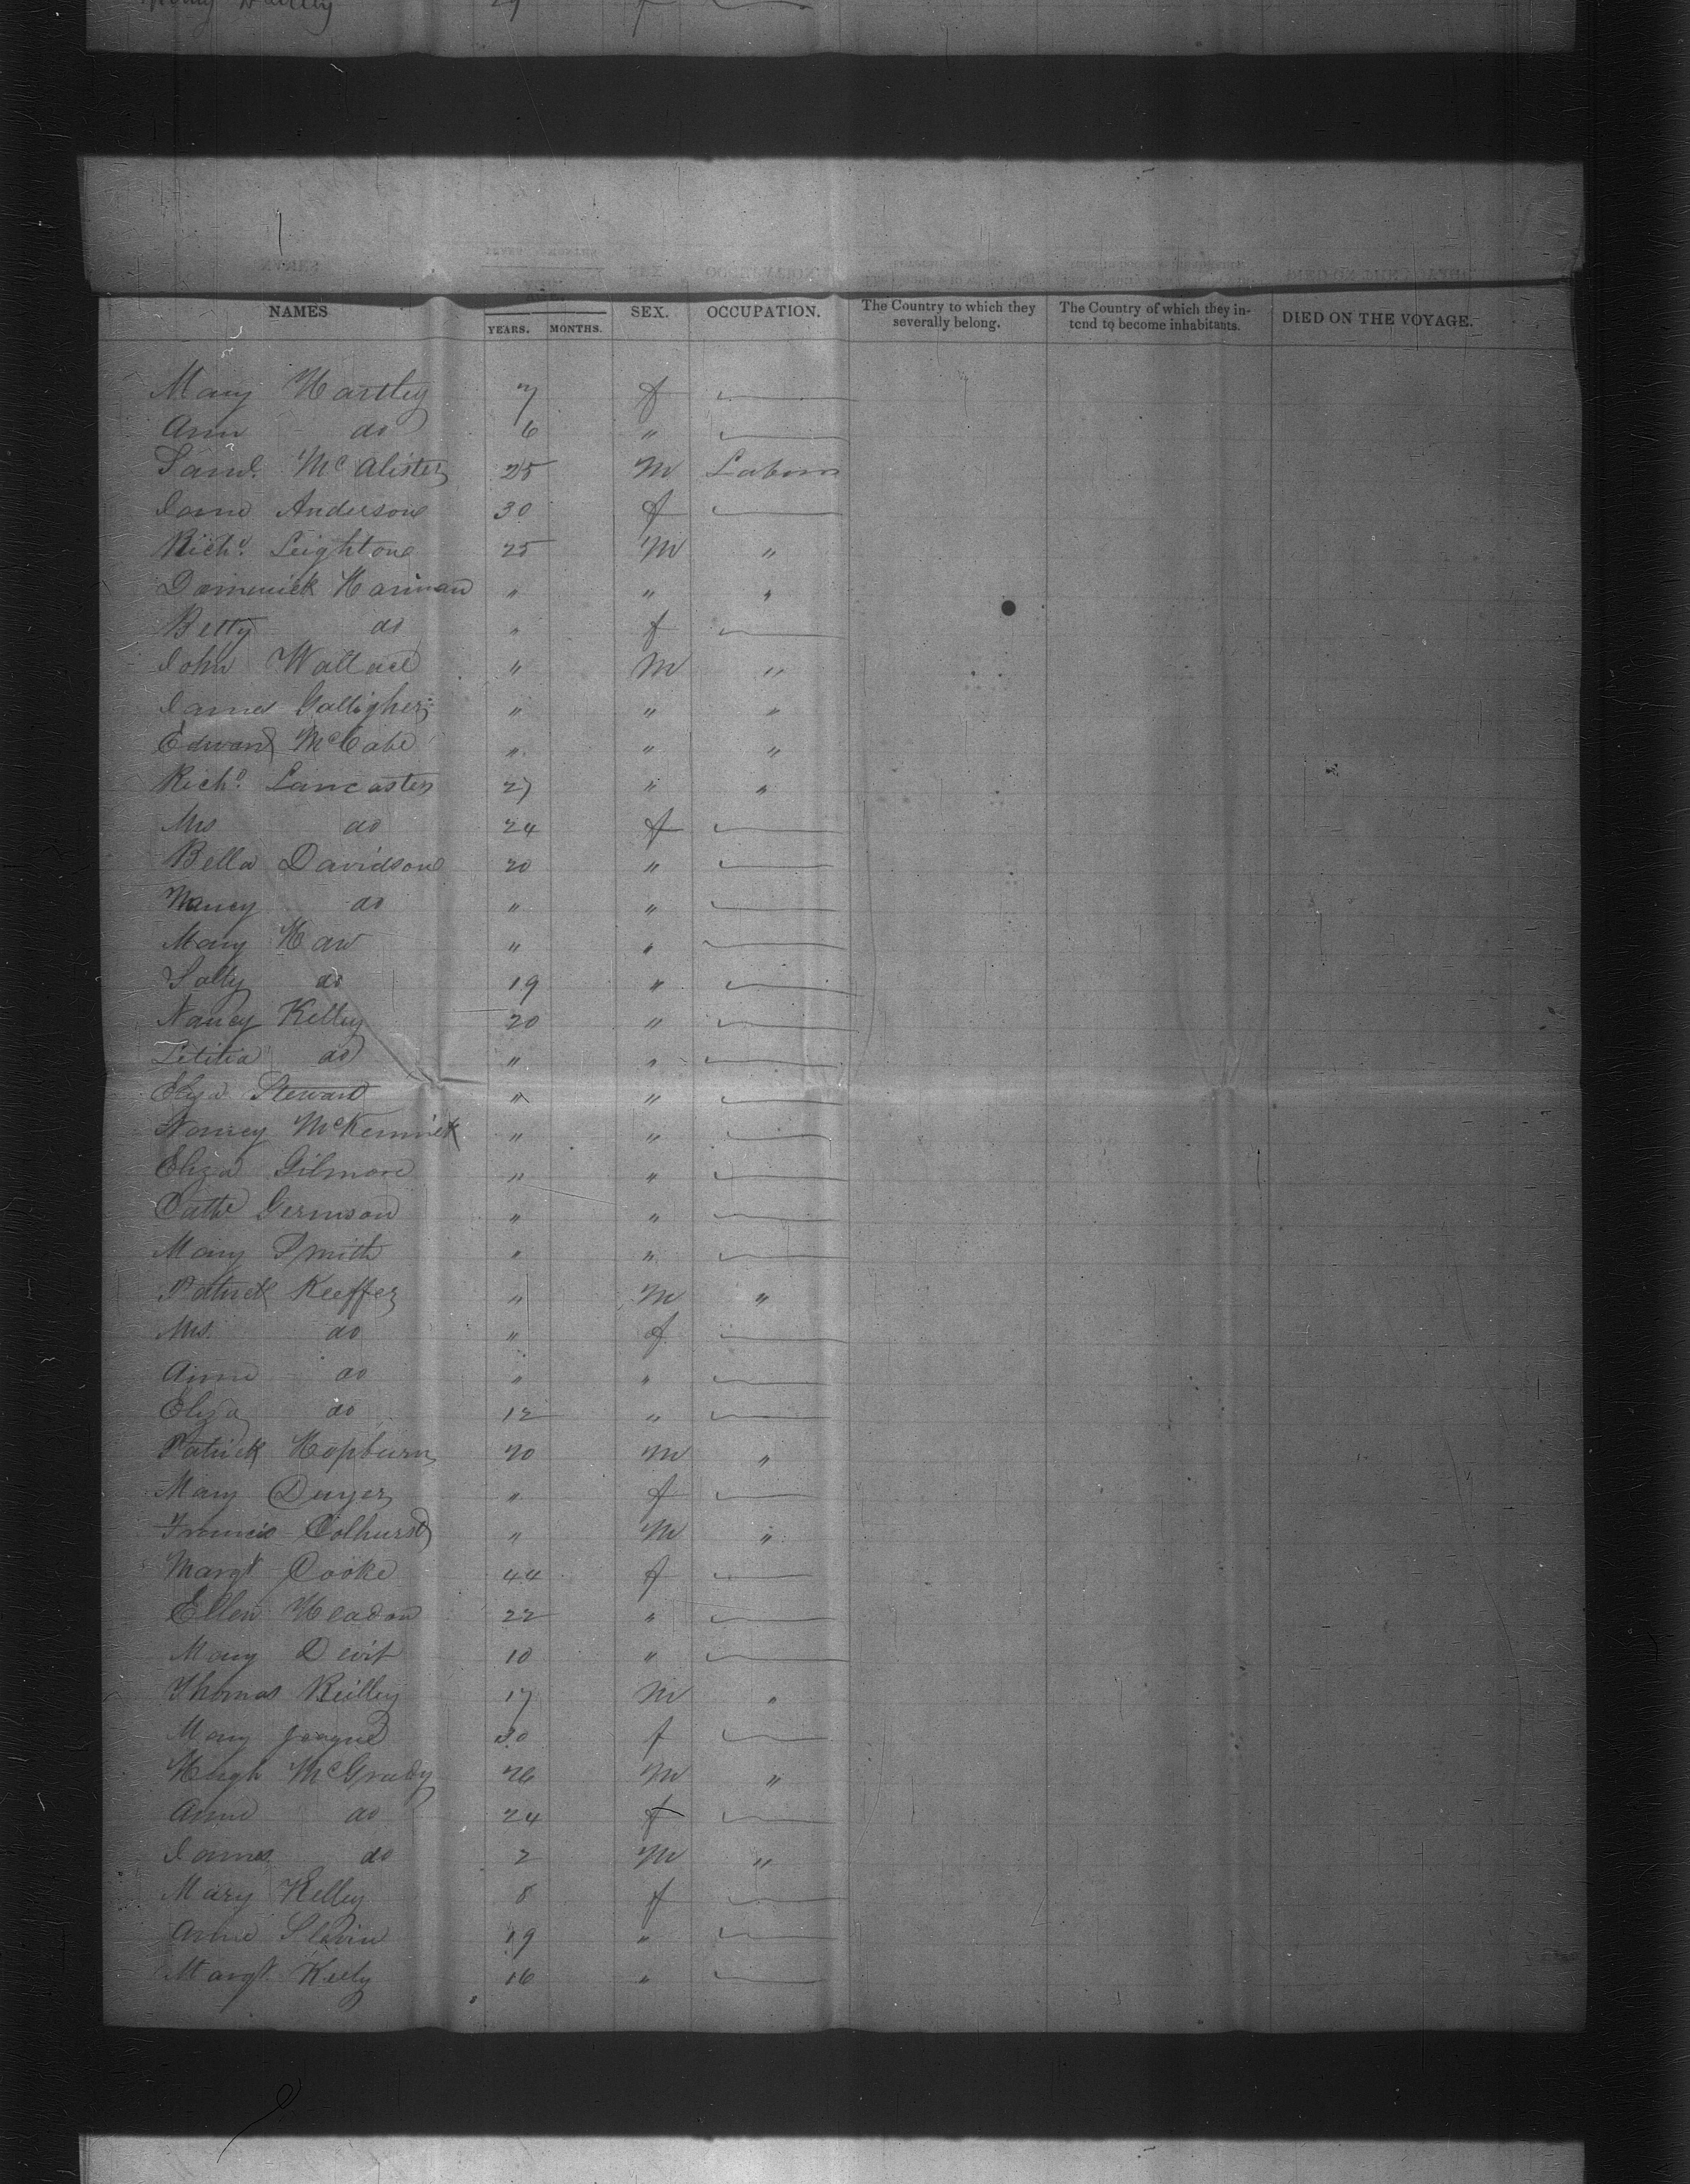 29 f
NAMES YEARS. MONTHS. SEX. OCCUPATION. The Country to which they severally belong. The Country of which they intend to become inhabitants. DIED ON THE VOYAGE.
Mary Hartley 7 f
Ann do 6 "
Saml. McAlister 25 M Labour
Jane Anderson 30 f
Richd. Leighton 25 M "
Domenick Harinan " " "
Betty do " f
John Wallace " M "
James Galligher " " "
Edward McCabe " " "
Richd. Lancaster 27 " "
Mrs do 24 f
Bella Davidson 20 "
Nancy do " "
Mary Haw " "
Sally do 19 "
Nancy Kelley 20 "
Letitia do " "
Eliza Steward " "
Nancy McKennick " "
Eliza Gilmore " "
Cathe Germson " "
Mary Smith " "
Patrick Keeffer " M "
Mrs. do " f
Anne do " "
Eliza do 12 "
Patrick Hopburn 20 M "
Mary Dwyer " f
Francis Colhurst " M "
Margt Cooke 44 f
Ellen Headon 22 "
Mary Devit 10 "
Thomas Reilley 17 M "
Mary 30 f
Hugh McGrady 26 M "
Anne do 24 f
James do 2 M "
Mary Kelley 8 f
Anne Slavin 19 "
Margt Keely 16 "